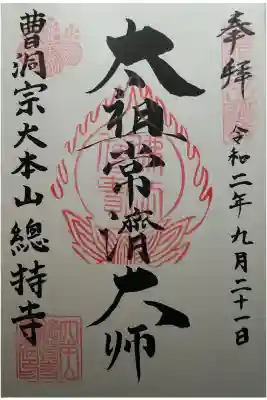 奉拝
令和二年九月二十一日
太祖常濟大师
曹洞宗大本山總持寺